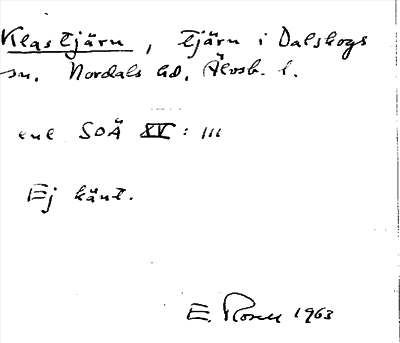 Klastjärn, tjärn i Dalskogs
sn. Nordals hd. Älvsb. l.
enl SOÄ XV: 111
Ej känt.
E. Rosell 1963